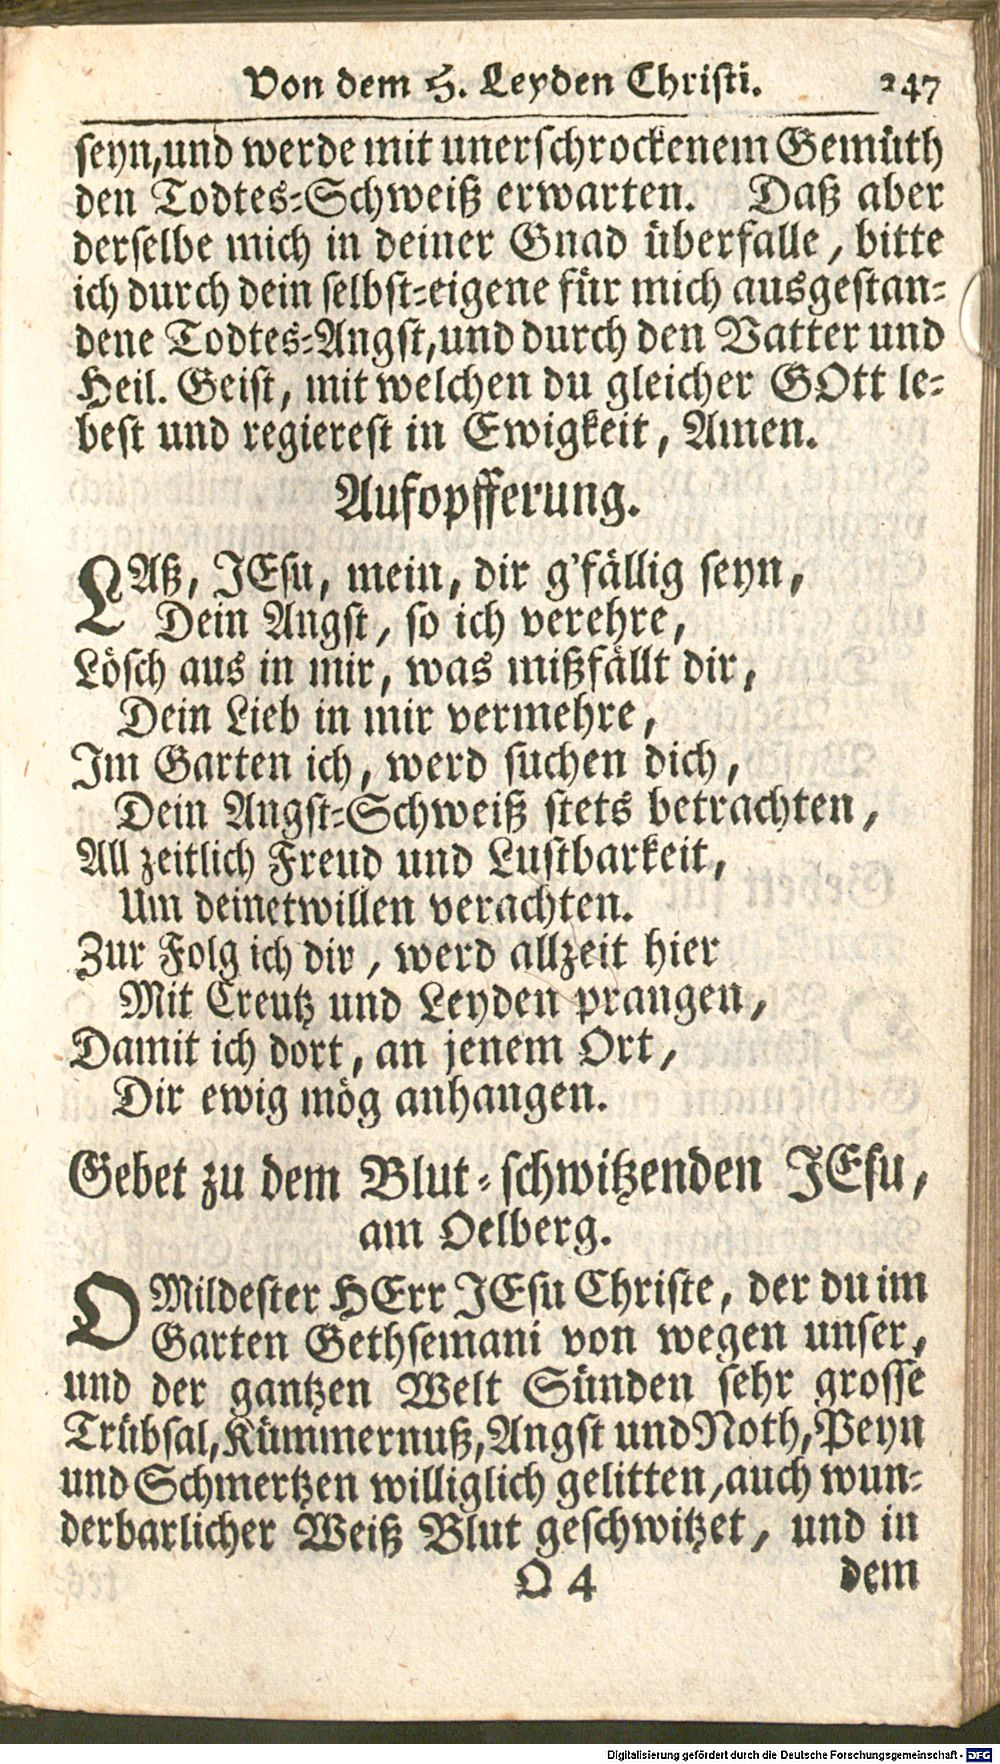 Von dem H. Leyden Christi. 247
seyn, und werde mit unerschrockenem Gemüth
den Todtes-Schweiß erwarten. Daß aber
derselbe mich in deiner Gnad überfalle, bitte
ich durch dein selbst-eigene für mich ausgestan-
dene Todtes-Angst, und durch den Vatter und
Heil. Geist, mit welchen du gleicher GOtt le-
best und regierest in Ewigkeit, Amen.
Aufopfferung.
LAß, JEsu, mein, dir g'fällig seyn,
Dein Angst, so ich verehre,
Lösch aus in mir, was mißfällt dir,
Dein Lieb in mir vermehre,
Im Garten ich, werd suchen dich,
Dein Angst-Schweiß stets betrachten,
All zeitlich Freud und Lustbarkeit,
Um deinetwillen verachten.
Zur Folg ich dir, werd allzeit hier
Mit Creutz und Leyden prangen,
Damit ich dort, an jenem Ort,
Dir ewig mög anhangen.
Gebet zu dem Blut-schwitzenden JEsu,
am Oelberg.
O Mildester HErr JEsu Christe, der du im
Garten Gethsemani von wegen unser,
und der gantzen Welt Sünden sehr grosse
Trübsal, Kümmernuß, Angst und Noth, Peyn
und Schmertzen williglich gelitten, auch wun-
derbarlicher Weiß Blut geschwitzet, und in
O 4 dem
Digitalisierung gefördert durch die Deutsche Forschungsgemeinschaft - DFG